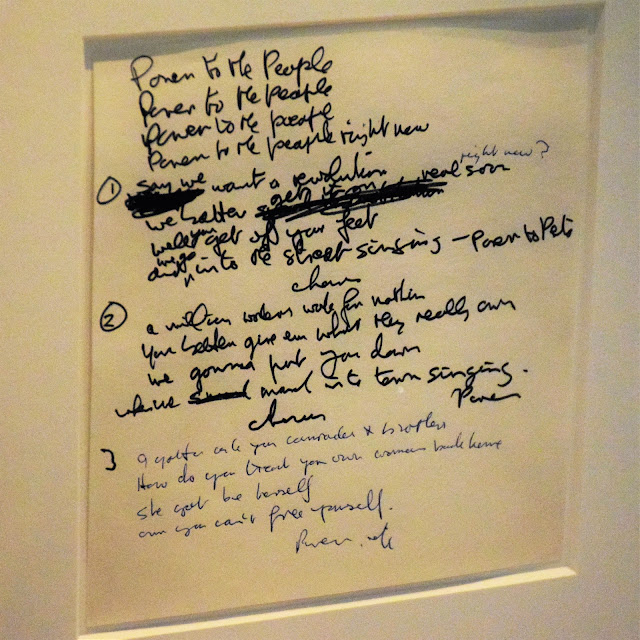 Power to the People
Power to the people
Power to the people
Power to the people right now
① say we want a revolution right now?
we better get it on real soon
well you get on your feet
into the street singing – Power to Pete
chorus
② a million workers work for nothin
You better give em what they really own
we gonna put you down
when we march into town singing.
chorus Power
3 I gotta ask you comrades & brothers
How do you treat your own woman back home
She got to be herself
you can't free yourself.
Power. etc